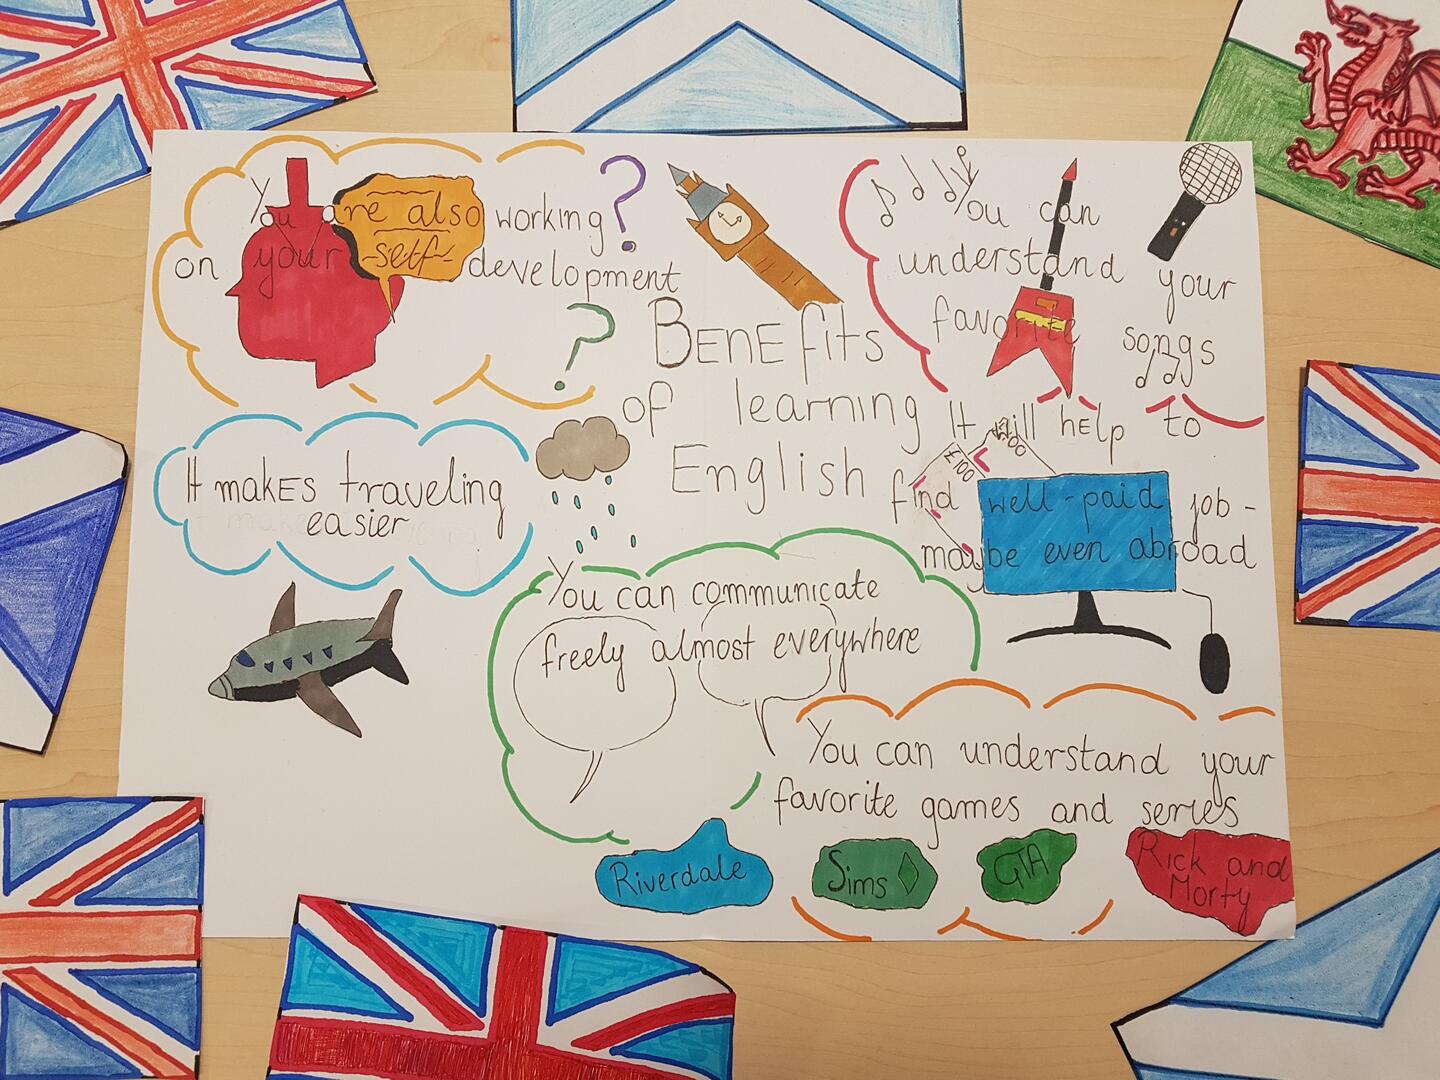 You are also working
on your self-development
Benefits
of learning
English
You can
understand your
favorite songs
It will help to
find well-paid job -
maybe even abroad
It makes traveling
easier
You can communicate
freely almost everywhere
You can understand your
favorite games and series
Riverdale
Sims
GTA
Rick and
Morty